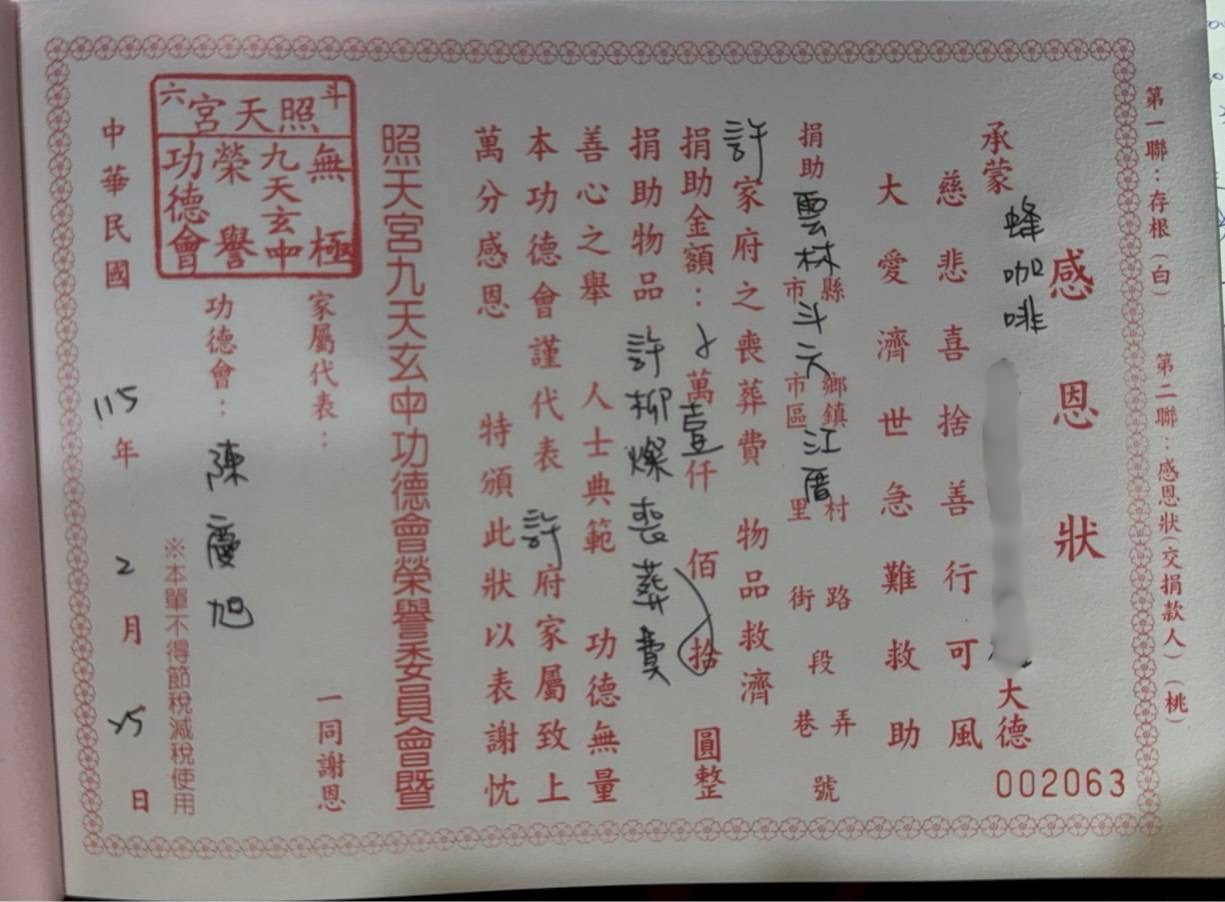 第一聯：存根（白） 第二聯：感恩狀（交捐款人）（桃）
感恩狀
002063
承蒙 蜂咖啡 大德
慈悲喜捨善行可風
大愛濟世急難救助
捐助 雲林 縣市 斗六 鄉鎮市區 江厝 村里 路街 段 弄巷 號
許家府之喪葬費 物品救濟
捐助金額： 萬壹仟 佰 拾 圓整
捐助物品 許柳燦喪葬費
善心之舉 人士典範 功德無量
本功德會謹代表 許府家屬致上
萬分感恩 特頒此狀以表謝忱
照天宮九天玄中功德會榮譽委員會暨
家屬代表： 一同謝恩
功德會： 陳慶旭
※本單不得節稅減稅使用
斗六
照天宮
無極
九天玄中
榮譽
功德會
中華民國 115 年 2 月 25 日